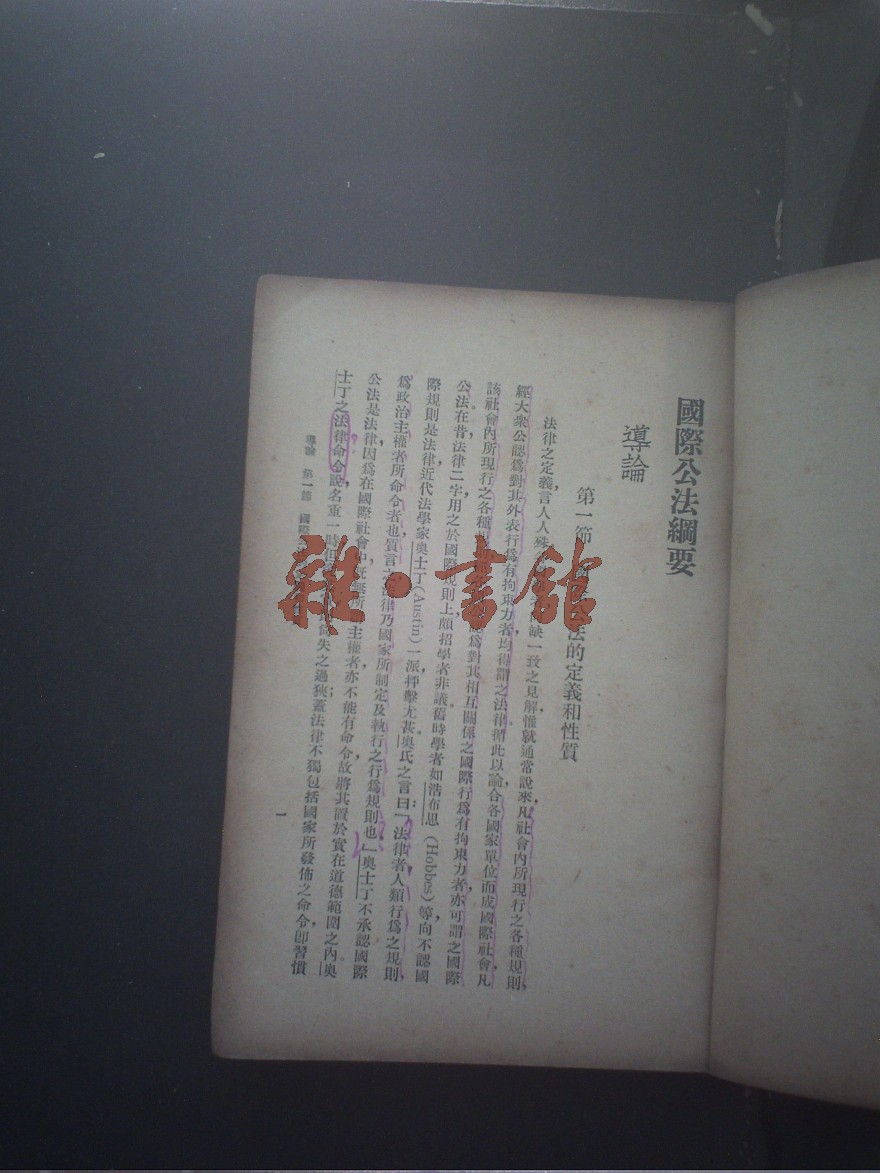 國際公法綱要
導論
第一節 國際公法的定義和性質
法律之定義言人人殊缺一致之見解惟就通常說來凡社會內所現行之各種規則,
經大衆公認爲對其外表行爲有拘束力者,均得謂之法律。循此以論,合各國家單位而成國際社會,凡
該社會內所現行之各種爲對其相互關係之國際行爲有拘束力者,亦可謂之國際
公法。在昔法律二字用之於國際規則上,頗招學者非議。舊時學者如浩布思(Hobbes)等,向不認國
際規則是法律,近代法學家奧士丁(Austin)一派,抨擊尤甚。奧氏之言曰:「法律者,人類行爲之規則,
爲政治主權者所命令者也。質言之,法律乃國家所制定及執行之行爲規則也。」奧士丁不承認國際
公法是法律,因爲在國際社會中,既無所主權者,亦不能有命令,故將其置於實在道德範圍之內。奧
士丁之法律命令說,名重一時,但失之過狹,蓋法律不獨包括國家所發佈之命令,即習慣
導論 第一節 國際
一
雜·書館